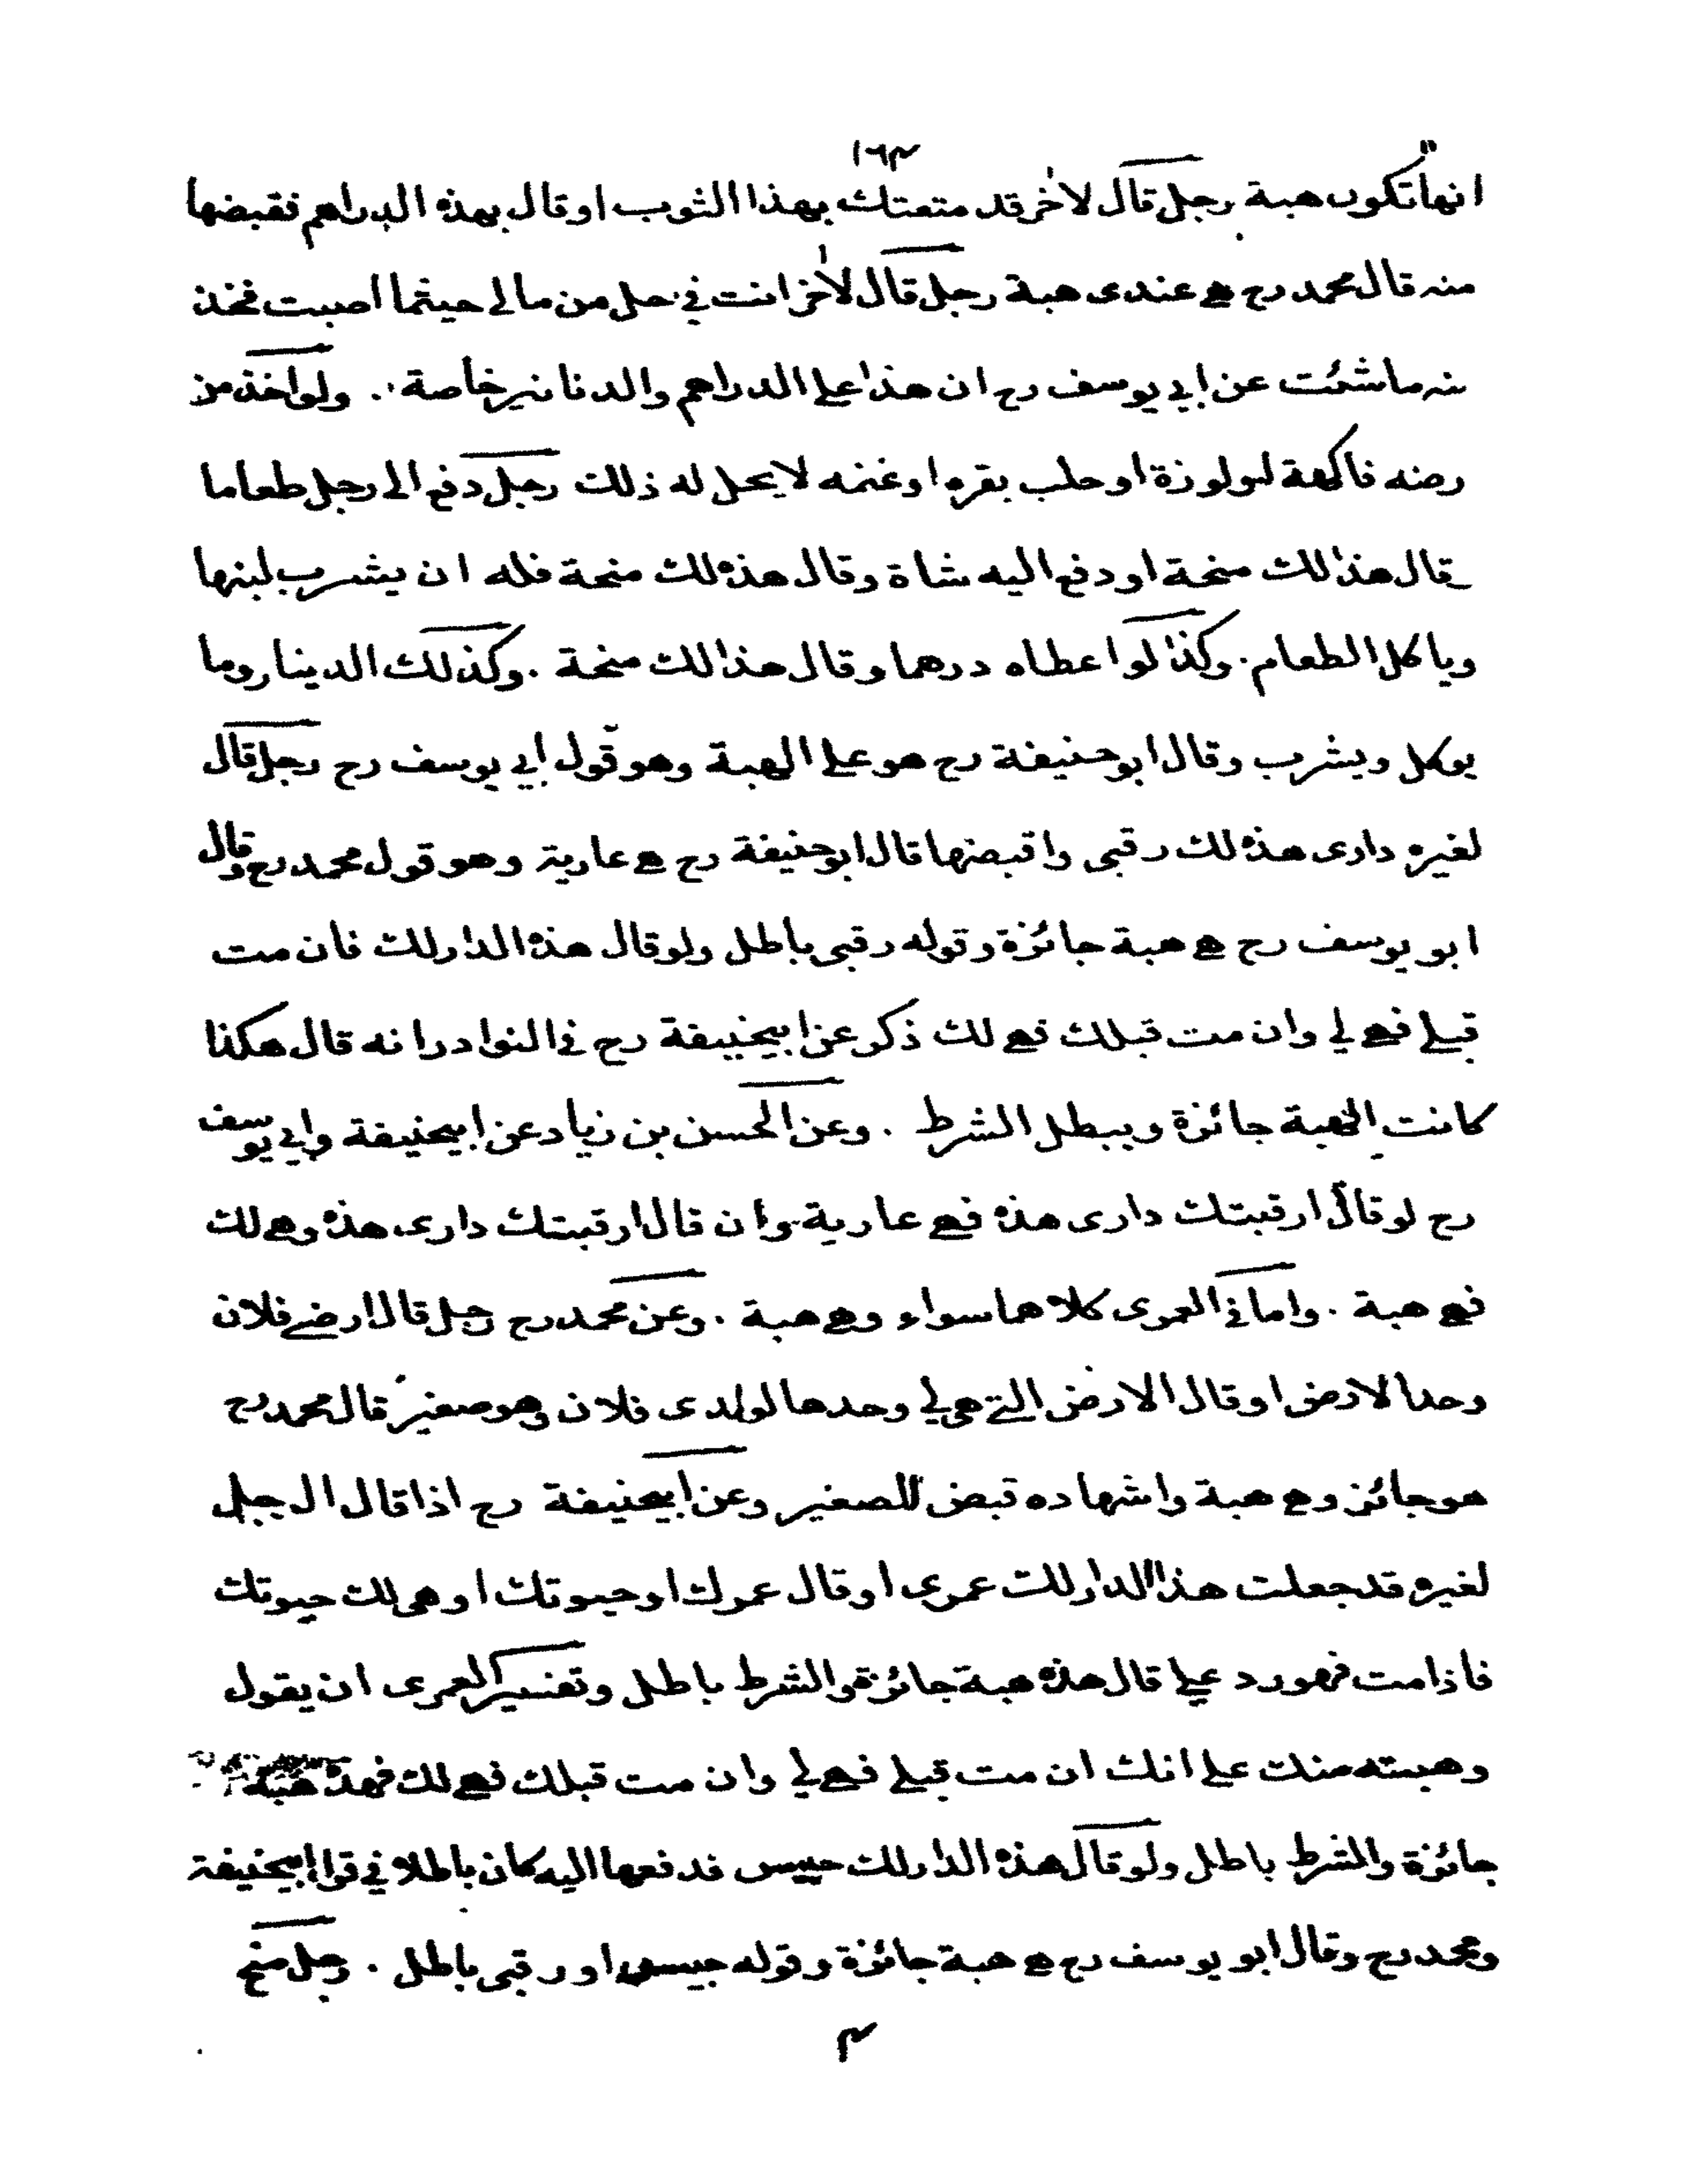 ١٦٣
انها تكون هبة رجل قال لاخر قد متعتك بهذا الثوب او قال بهذه الدراهم فقبضها
منه قال محمد رح هي عندى هبة رجل قال لاخر انت في حل من مالي حيثما اصبت فخذ
منه ما شئت عن ابي يوسف رح ان هذا على الدراهم والدنانير خاصة . ولو اخذ من
رضه فاكهة او حلب بقره او غنمه لا يحل له ذلك رجل دفع الى رجل طعاما
قال هذا لك منحة او دفع اليه شاة وقال هذه لك منحة فله ان يشرب لبنها
وياكل الطعام . وكذا لو اعطاه درهما وقال هذا لك منحة . وكذلك الدينار وما
يوكل ويشرب وقال ابو حنيفة رح هو على الهبة وهو قول ابي يوسف رح رجل قال
لغيره دارى هذه لك رقبى واقبضها قال ابو حنيفة رح هي عارية وهو قول محمد رح وقال
ابو يوسف رح هي هبة جائزة وقوله رقبى باطل ولو قال هذه الدار لك فان مت
قبلي فهي لي وان مت قبلك فهي لك ذكر عن ابيحنيفة رح في النوادر انه قال هكذا
كانت الهبة جائزة ويبطل الشرط . وعن الحسن بن زياد عن ابيحنيفة وابي يوسف
رح لو قال ارقبتك دارى هذه فهي عارية وان قال ارقبتك دارى هذه وهي لك
فهي هبة . واما في العمرى كلاهما سواء وهي هبة . وعن محمد رح رجل قال ارضي فلان
وحدا لارض او قال الارض التي هي لي وحدها لولدى فلان وهو صغير قال محمد رح
هو جائز وهي هبة واشهاده قبض للصغير وعن ابيحنيفة رح اذا قال الرجل
لغيره قد جعلت هذا الدار لك عمرى او قال عمرك او حيوتك او هي لك حيوتك
فاذا مت فهو رد علي قال هذه هبة جائزة والشرط باطل وتفسير العمرى ان يقول
وهبته منك على انك ان مت قبلي فهي لي وان مت قبلك فهي لك فهذه هبة
جائزة والشرط باطل ولو قال هذه الدار لك حبيس فدفعها اليه كان باطلا في قول ابيحنيفة
ومحمد رح وقال ابو يوسف رح هي هبة جائزة وقوله حبيس او رقبى باطل . رجل منح
٣